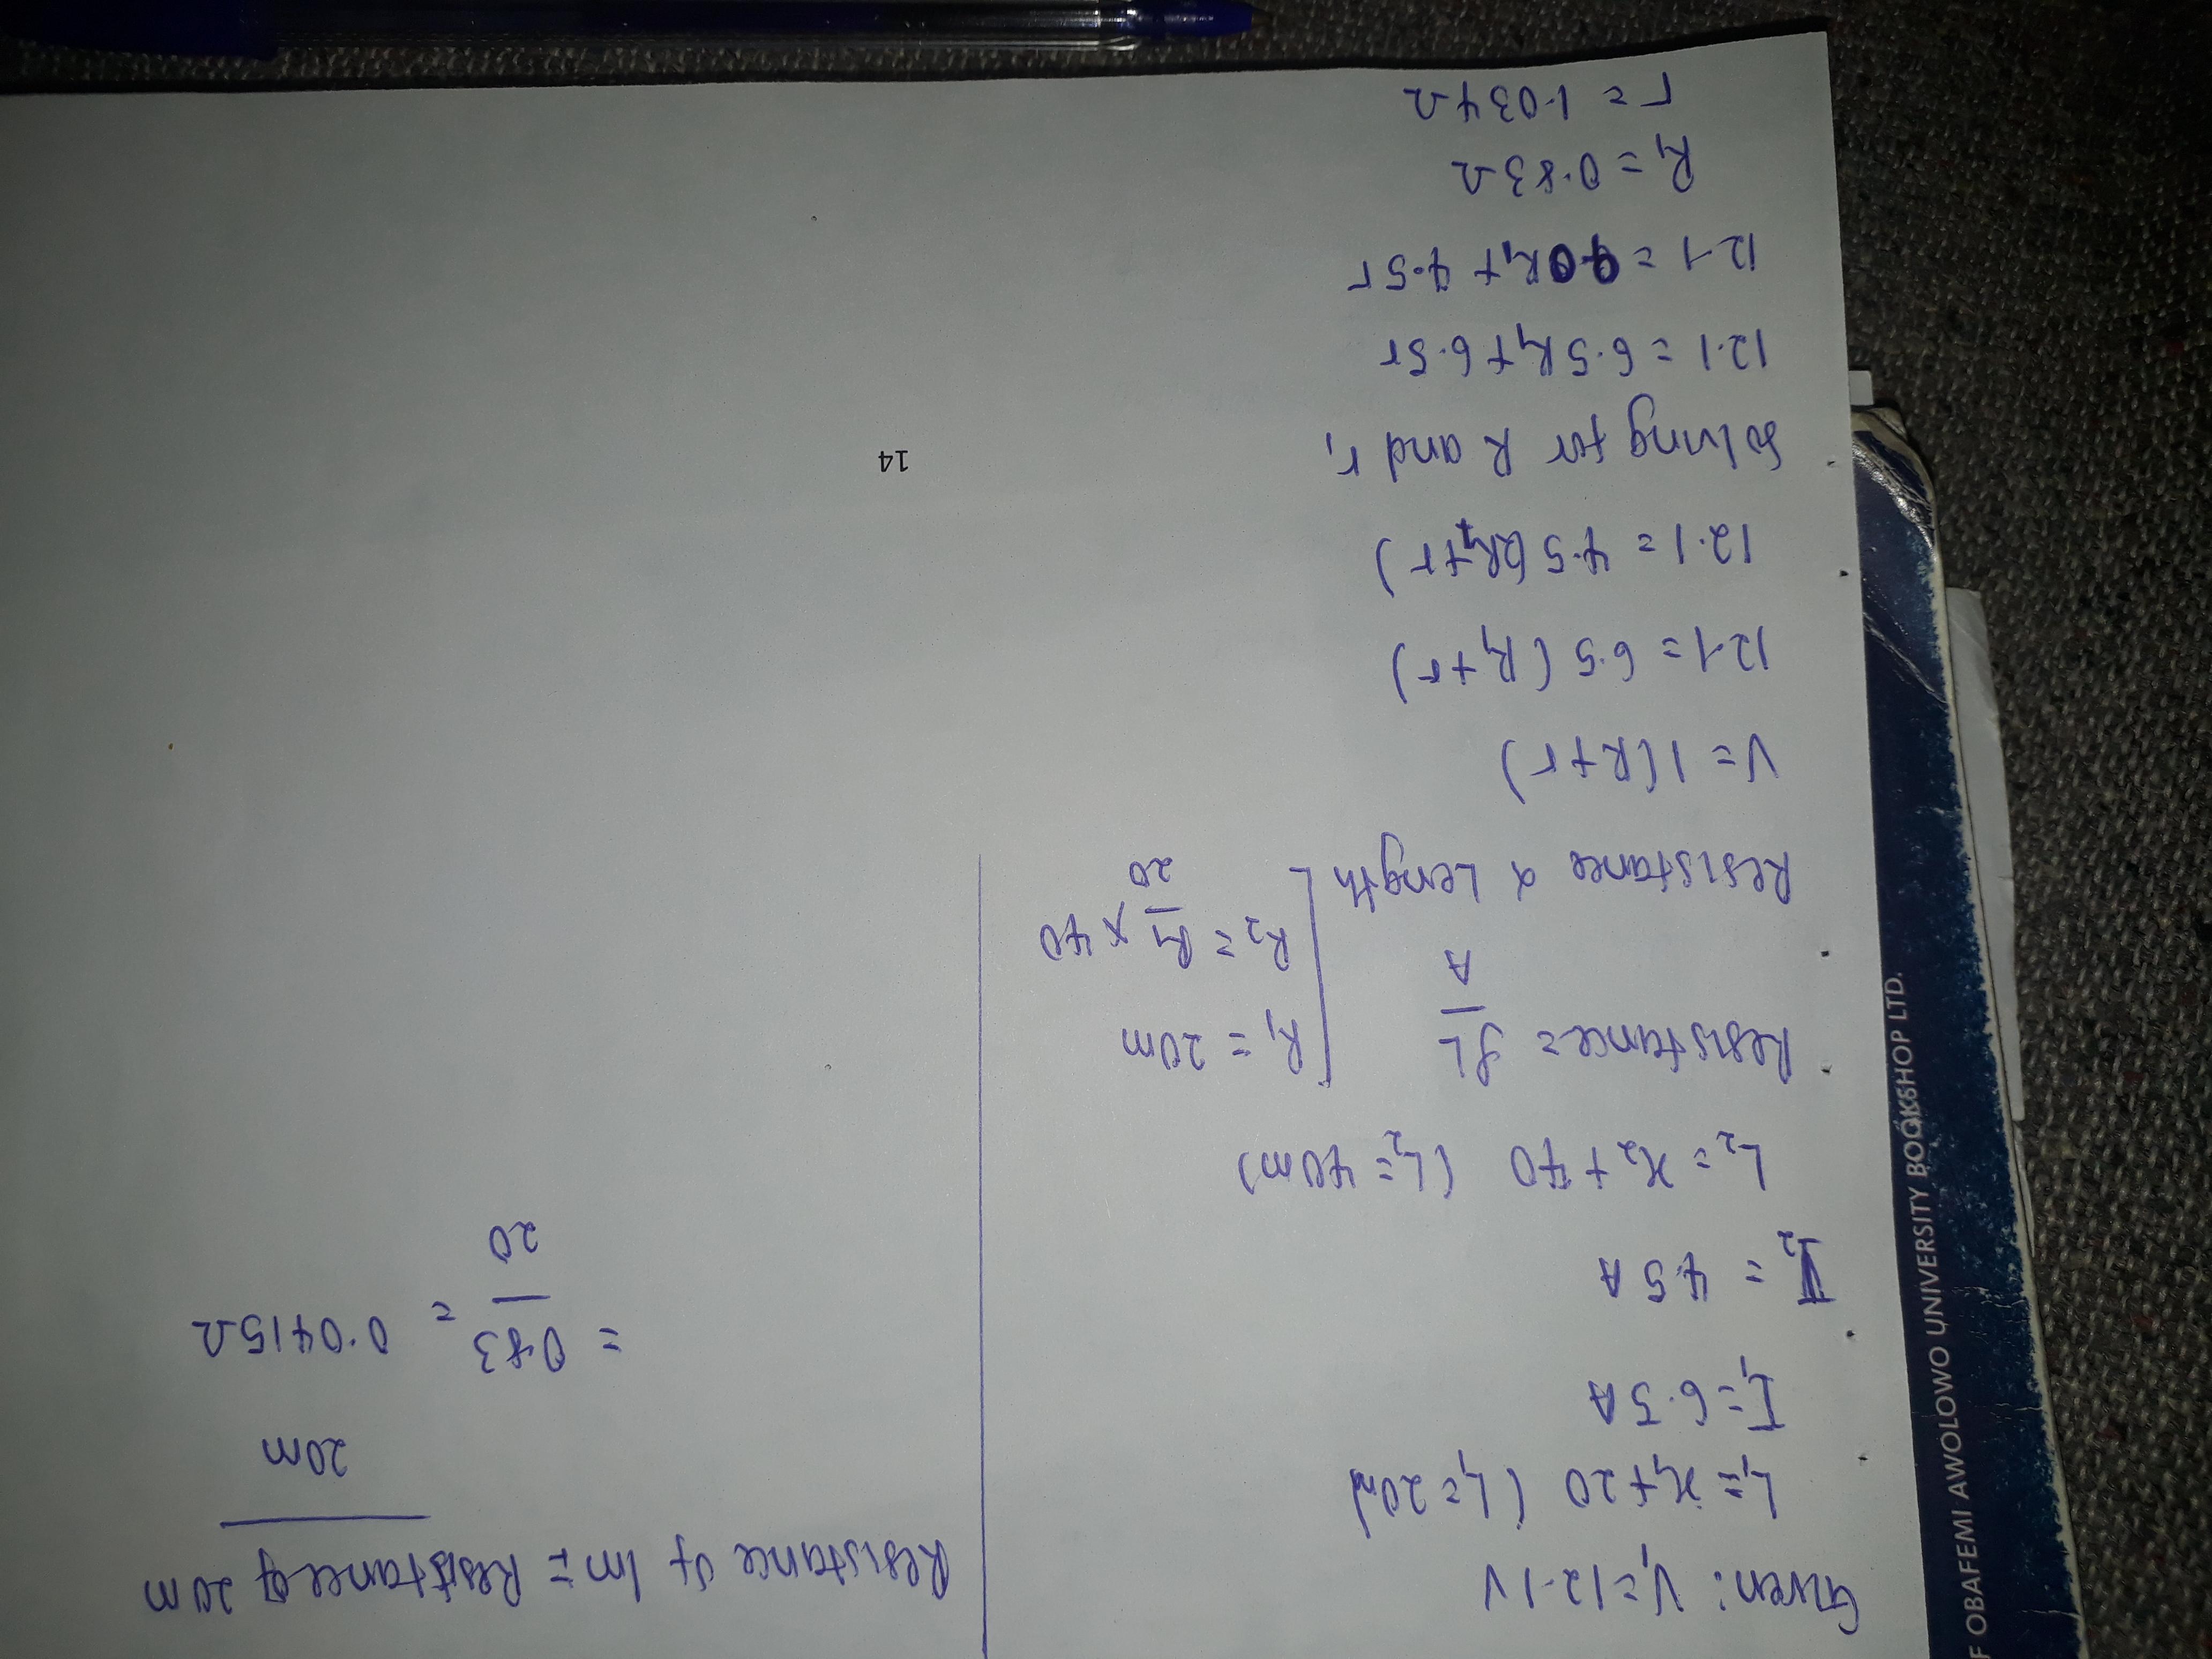 Given: V₁=12.1V
L₁= x₁+20 (L₁=20m)
I₁=6.5A
I₂ = 4.5A
L₂= x₂+40 (L₂=40m)
Resistance= ρL
A
R₁ = 20m
R₂ = R₁ × 40
20
Resistance α Length L
V= I(R+r)
12.1=6.5(R₁+r)
12.1=4.5(2R₁+r)
Solving for R and r,
12.1=6.5R₁+6.5r
12.1=90R₁+4.5r
R₁=0.83Ω
r=1.034Ω
Resistance of 1m = Resistance of 20m
20m
= 0.83 = 0.0415Ω
20
14
F OBAFEMI AWOLOWO UNIVERSITY BOOKSHOP LTD.